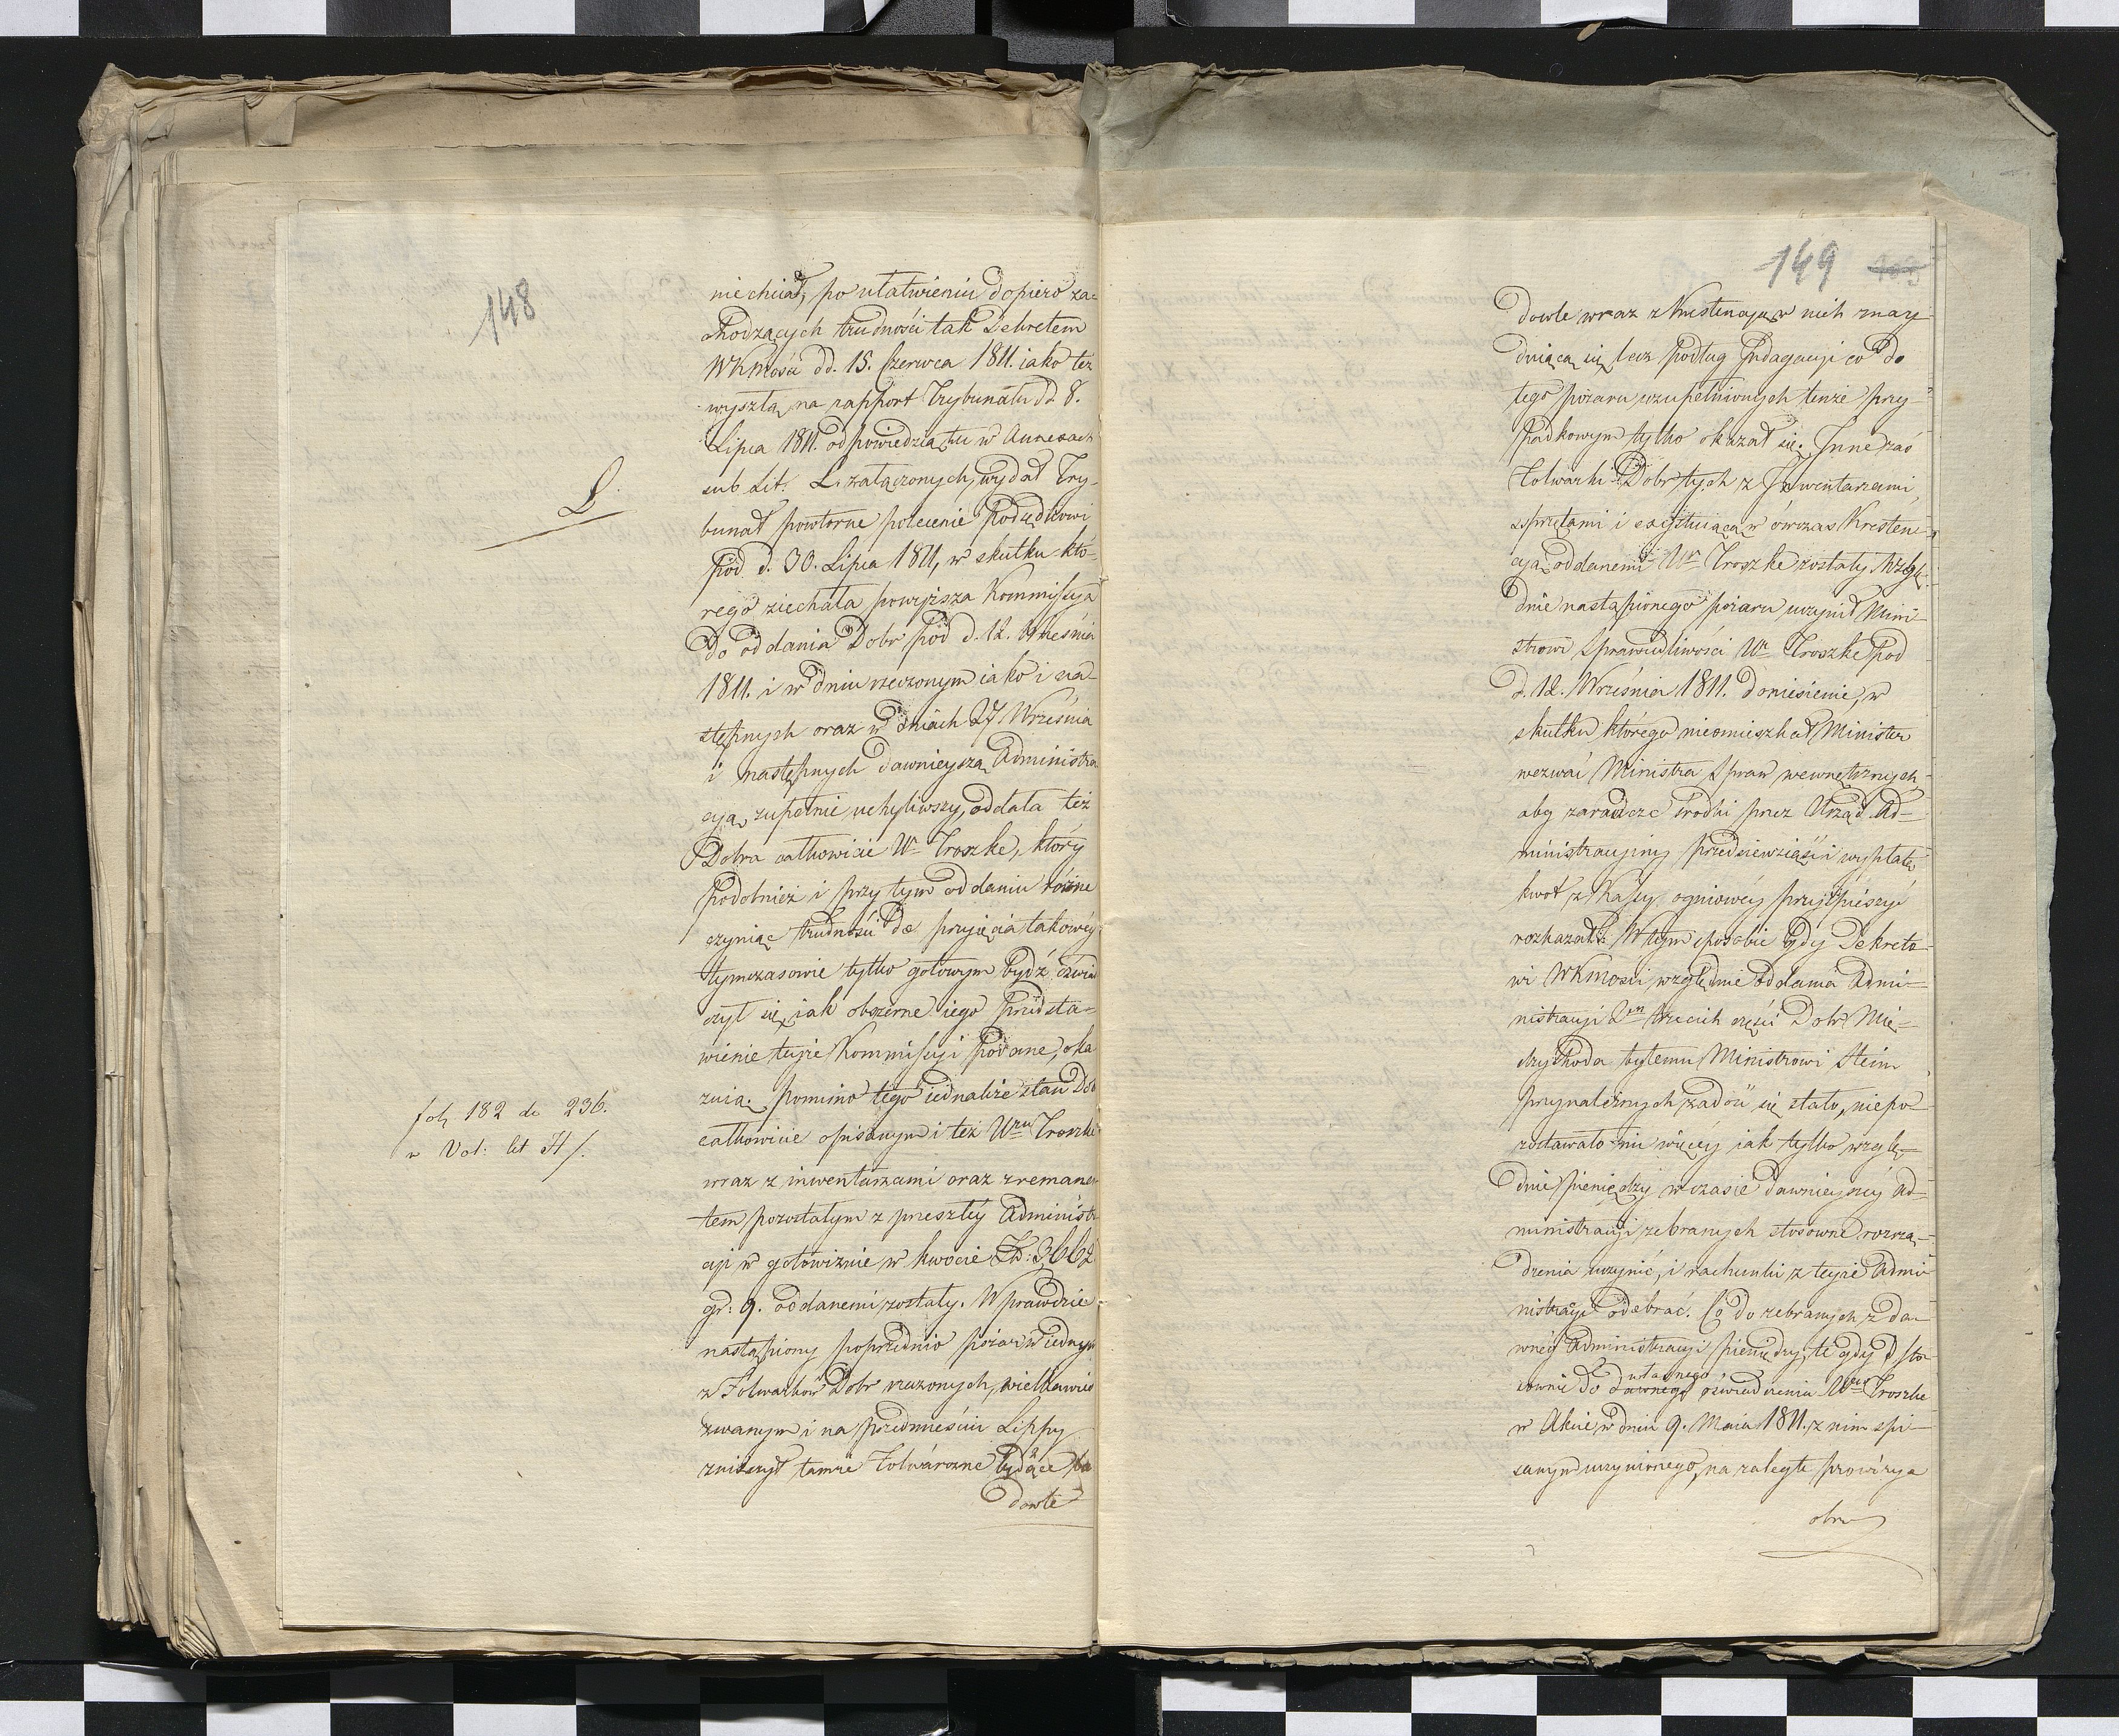 148
niechciał, po ułatwieniu dopiero za-
chodzących trudności tak Dekretem
WKMości dd. 15. Czerwca 1811. iako też
wyszłą na rapport Trybunału dd 8.
Lipca 1811. odpowiedzią tu w Annexach
sub Lit. L. załączonych, wydał Try-
L.
bunał powtorne polecenie Podsędkowi
pod d. 30. Lipca 1811, w skutku kto-
rego ziechała powyższa Kommissya
do oddania Dobr pod d. 12. Wrześnìa
1811. i w dniu rzeczonym iako i na-
stępnych oraz w dniach 27 Września
i następnych dawnieyszą Administra
cyą zupełnie uchyliwszy, oddała też
Dobra całkowicie Wu Troszke, który
podobnież i przy tym oddaniu różne
czyniąc trudności do przyięcia takowéy
tymczasowie tylko gotowym bydź oświad
czył się, iak obszerne iego przedsta-
wienie teyże Kommissyi podane, oka
zuią. Pomimo tego iednakże stan Dobr
fol, 182 de 236.
całkowicie opisanym i też Wmu Troszke
w Vol: lit H/.
wraz z inwentarzami oraz z remanen
tem pozostałym z przeszłéy Administra
cyi w gotowiznie w kwocie Zł: 3662
gr: 9. oddanemi zostały. Wprawdzie
nastąpiony poprzednio pożar w iednym
z Folwarków Dobr rzeczonych, wielkawieś
zwanym i na przedmieściu Lippy
zniszczył tamże folwarczne będące bu
dowle
149
dowle wraz z Krestencyą w nich znay-
duiącą się, lecz podług Indagacyi co do
tego pożaru uzupełnionych tenże przy-
padkowym tylko okazał się. Inne zaś
folwarki Dobr tych z Inwentarzami,
sprzętami i exystuiącą w ówczas Kresten-
cyą oddanemi Wu Troszke zostały. Wzglę-
dnie nastąpionego pożaru uczynił Mini-
strowi Sprawiedliwości Wu Troszke pod
d. 12. Września 1811. doniesienie, w
skutku którego nieomieszkał Minister
wezwać Ministra Spraw wewnętrznych
aby zaradcze srodki przez Urząd Ad-
ministracyiny przedsiewziąść i wypłatę
kwot z Kassy ogniowéy przyspieszyć
rozkazał. W tym sposobie gdy Dekreto-
wi WKMości względnie oddania Admi-
nistracyi 2ch trzecich części Dobr Mię-
dzychoda byłemu Ministrowi Stein
przynależnych zadość się stało, niepo-
zostawało nic więcéy iak tylko wzglę-
dnie pieniędzy w czasie dawnieyszéy Ad-
ministracyi zebranych stosowne rozrzą-
dzenia uczynić, i rachunki z teyże Admi-
nistracyi odebrać. Co do zebranych z da-
wnéy Administracyi pieniędzy, te gdy sto-
ustanego
sownie do dawnego oświadczenia Wgo Troszke
w Akcie w dniu 9. Maia 1811. z nim spi-
sanym uczynionego, na zaległe prowizye
obra